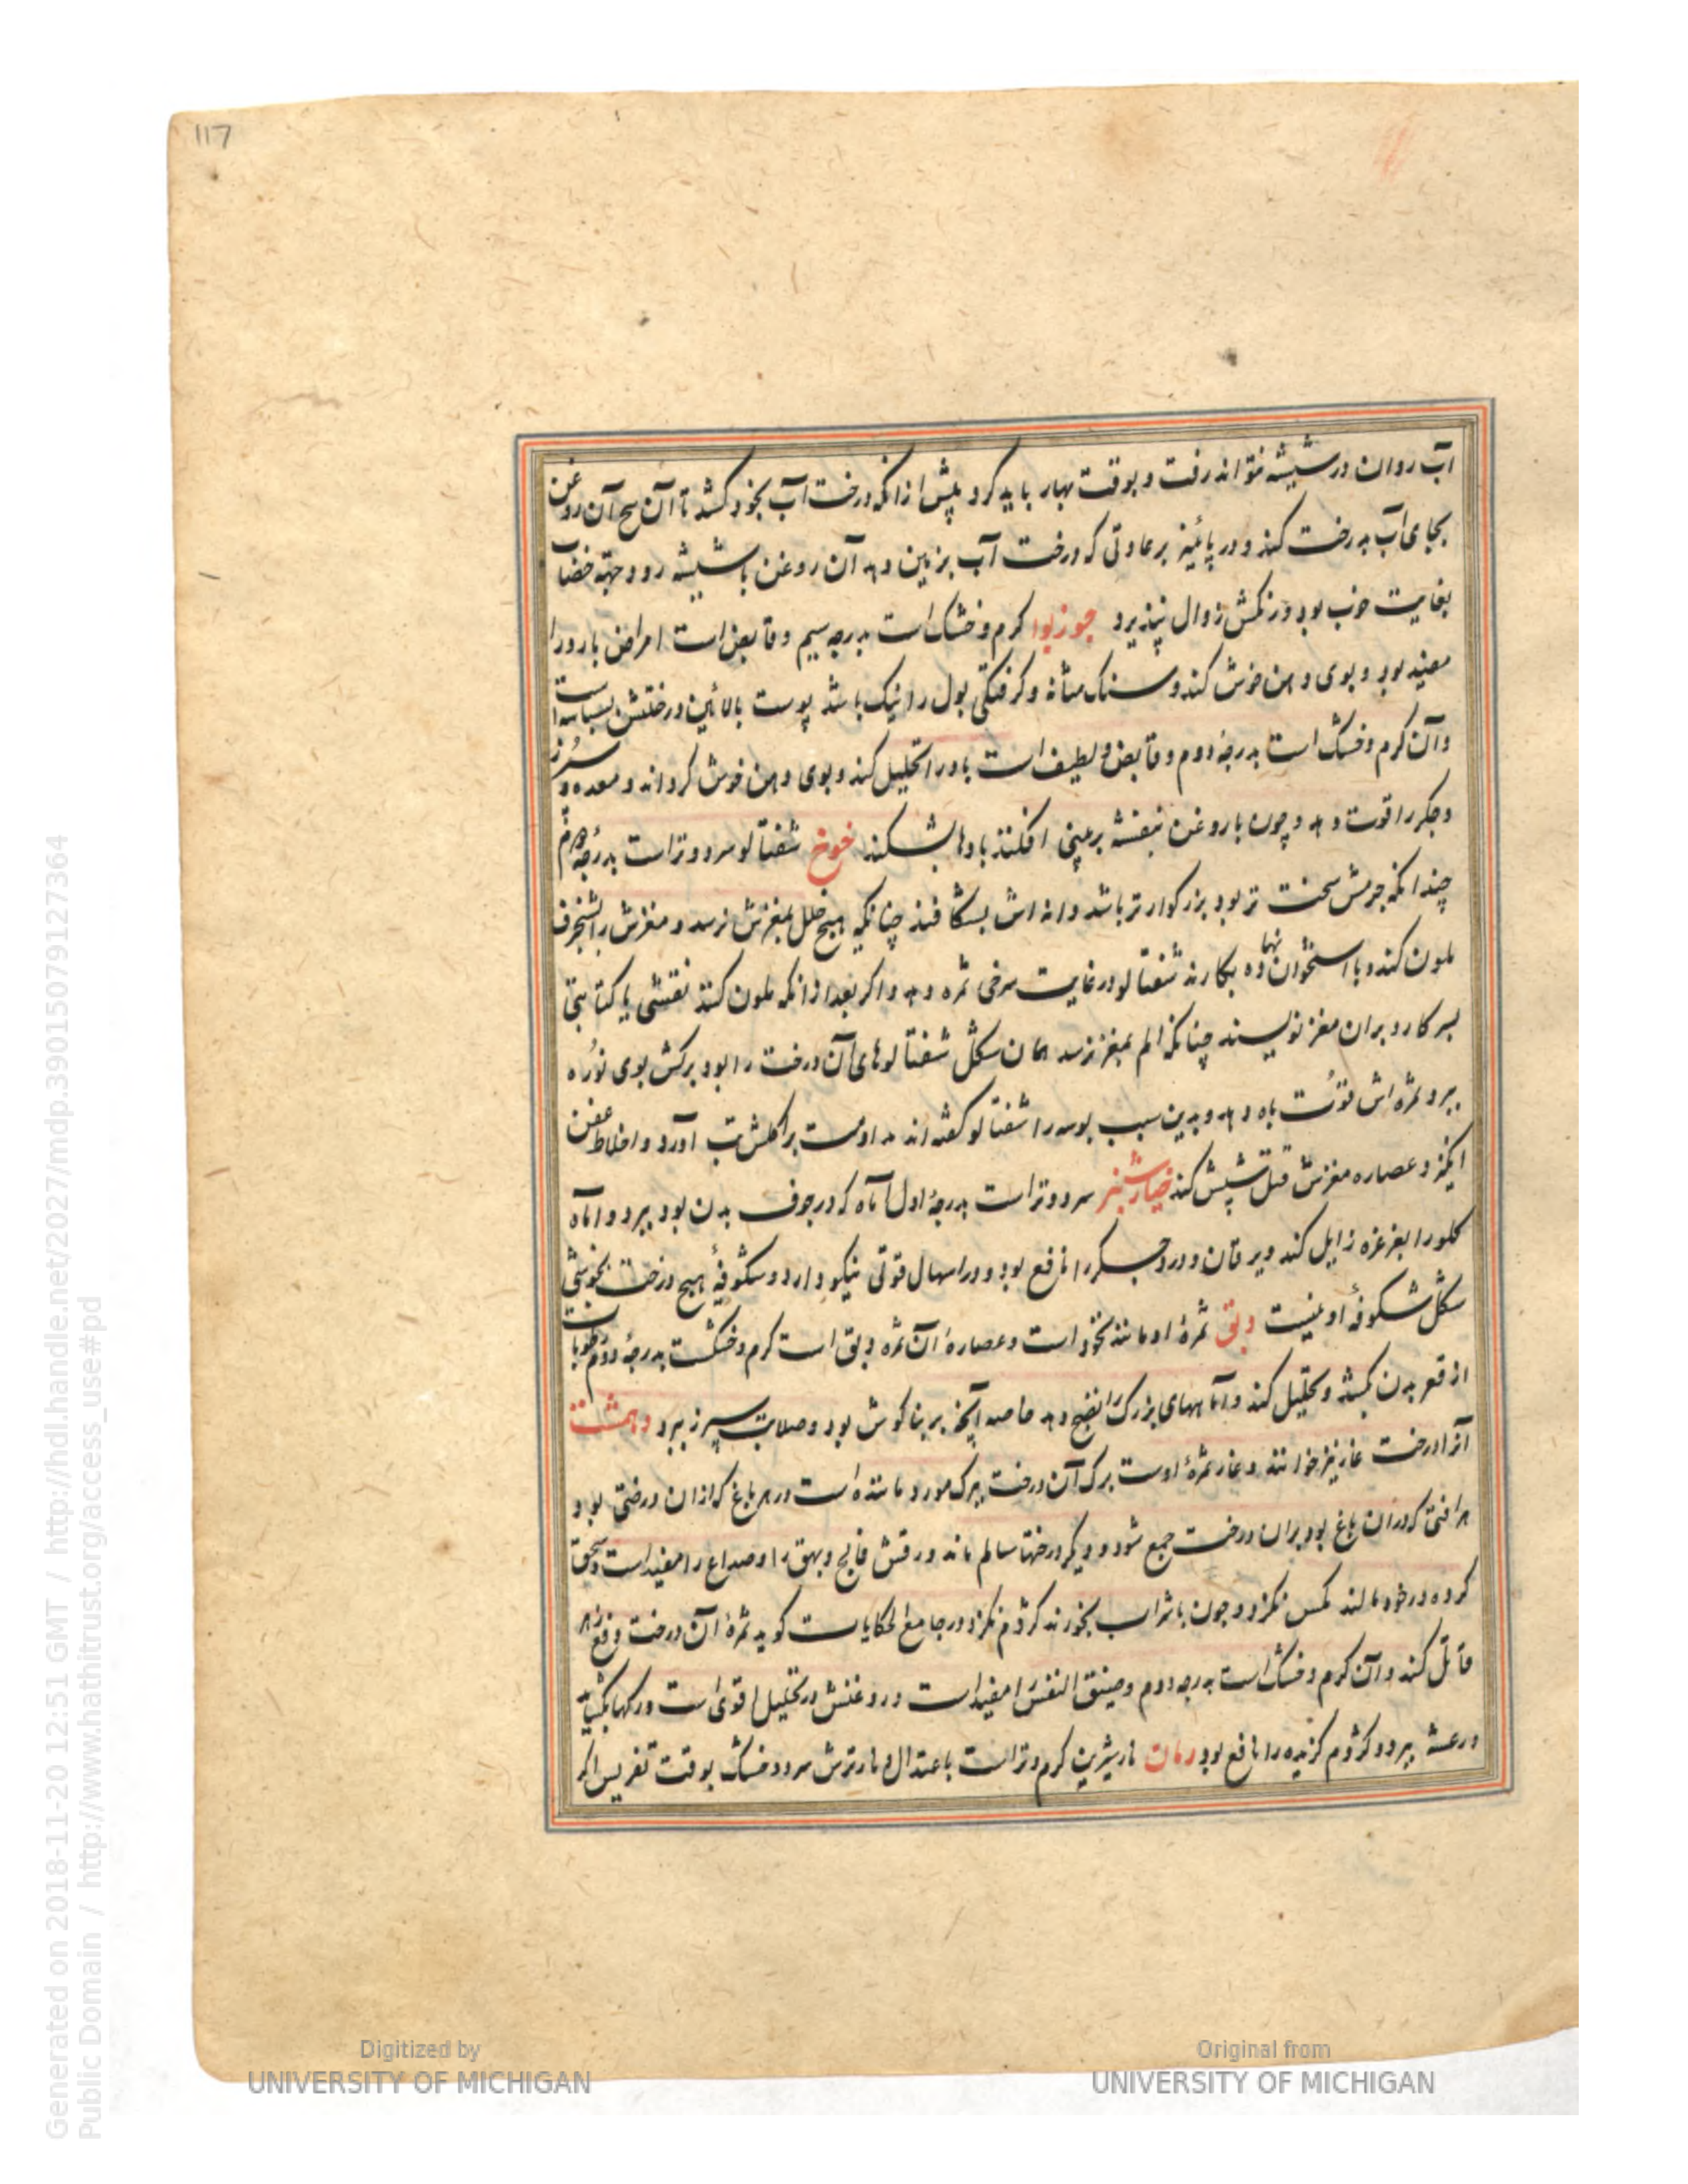 117
آب روان در شیشه نتواند رفت و بوقت بهار باید کرد پیش ازانکه درخت آب بخود کشد تا آن بیخ آن روغن
بجای آب بدرخت کشد و در پائیز برعادتی که درخت آب بزمین دهد آن روغن با شیشه رود و جهة خضاب
بغایت خوب بود و رنکش زوال نپذیرد جوزبوا کرم و خشک است بدرجه سیم و قابض است امراض بارد را
مفید بود و بوی دهن خوش کند و سنک مثانه و کرفتکی بول را نیک باشد پوست بالائین درختش بسباسه است
و آن کرم و خشک است بدرجه دوم و قابض و لطیف است باد را تحلیل کند و بوی دهن خوش کرداند و معده و سپرز
و جکر را قوت دهد و چون با روغن بنفشه بر بینی افکنند بادها بشکند خوخ شفتالو سرد و تر است بدرجه دوم
چندانکه جرمش سخت تر بود بزرکوارتر باشد دانه اش بشکافند چنانکه هیچ خلل بمغزش نرسد و مغزش را بشنجرف
ملون کنند و با استخوان نهاده بکارند شفتالو در غایت سرخی ثمره دهد و اکر بعد ازانکه ملون کنند نقشی یا کتابتی
بسر کارد بران مغز نویسند چنانکه الم بمغز نرسد همان شکل شفتالوهای آن درخت را بود برکش بوی نوره
ببرد ثمره اش قوت باه دهد و بدین سبب بوسه را شفتالو کفته اند مداومت بر اکلش تب آورد و اخلاط عفن
انکیزد عصاره مغزش قتل شپش کند خیارشنبر سرد و تر است بدرجه اول آماه که در جوف بدن بود ببرد و آماه
کلو را بغرغره زایل کند و یرقان و درد جکر را نافع بود و در اسهال قوتی نیکو دارد و شکوفه هیچ درخت بخوشی
شکل شکوفه او نیست دبق ثمره او مانند نخود است و عصاره آن ثمره دبق است کرم و خشکست بدرجه دوم رطوبات
از قعر بدن بکشد و تحلیل کند و آماههای بزرک را نضج دهد خاصه آنچه بر بناکوش بود و صلابت سپرز ببرد دهمشت
آنرا درخت غار نیز خوانند و غار ثمره اوست برک آن درخت ببرک مورد ماننده است در هر باغ که ازان درختی بود
هر افتی که دران باغ بود بران درخت جمع شود و دیکر درختها سالم ماند ورقش فالج و بهق را و صداع را مفید است و سحق
کرده در خود مالند مکس نکزد و چون با شراب بخورند کژدم نکزد و در جامع الحکایات کوید ثمره آن درخت دفع زهر
قاتل کند و آن کرم و خشک است بدرجه دوم و ضیق النفس را مفید است و روغنش در تحلیل اقوی است و رکها بکشاید
و رعشه ببرد و کژدم کزیده را نافع بود رمان نار شیرین کرم و تر است باعتدال و نار ترش سرد و خشک بوقت تغریس اکر
Generated on 2018-11-20 12:51 GMT / http://hdl.handle.net/2027/mdp.39015079127364
Public Domain / http://www.hathitrust.org/access_use#pd
Digitized by
UNIVERSITY OF MICHIGAN
Original from
UNIVERSITY OF MICHIGAN